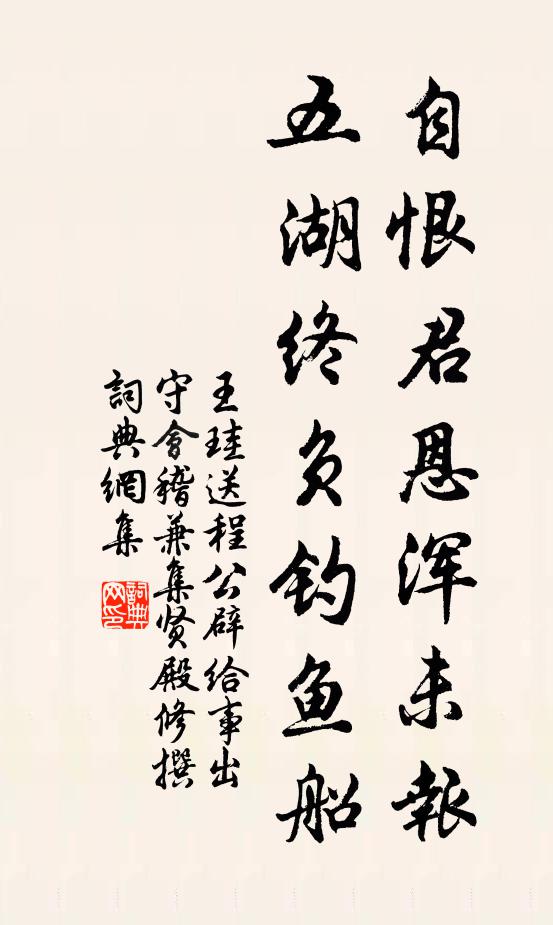 自恨君恩浑未報
五湖终负钓鱼船
王珪送程公辟给事出
守會稽兼集贤殿修撰
詞典網集
詞典
网印